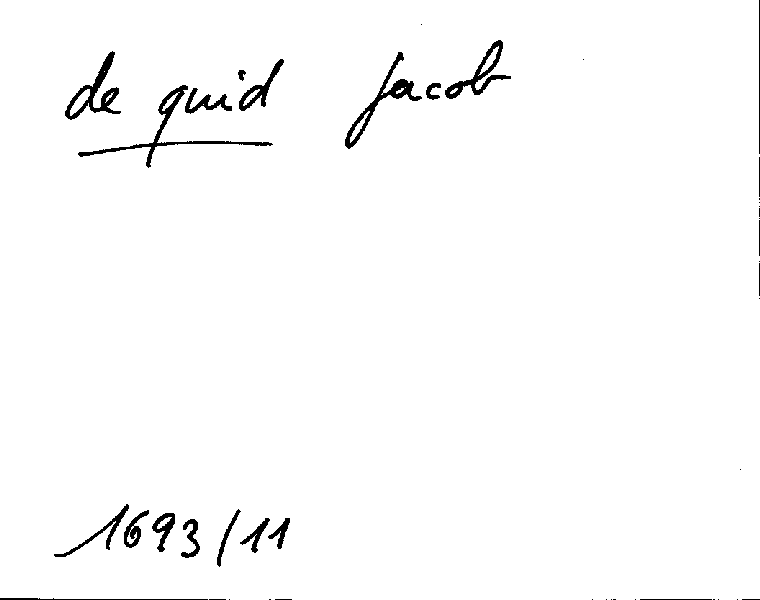 de quid Jacob
1693/11